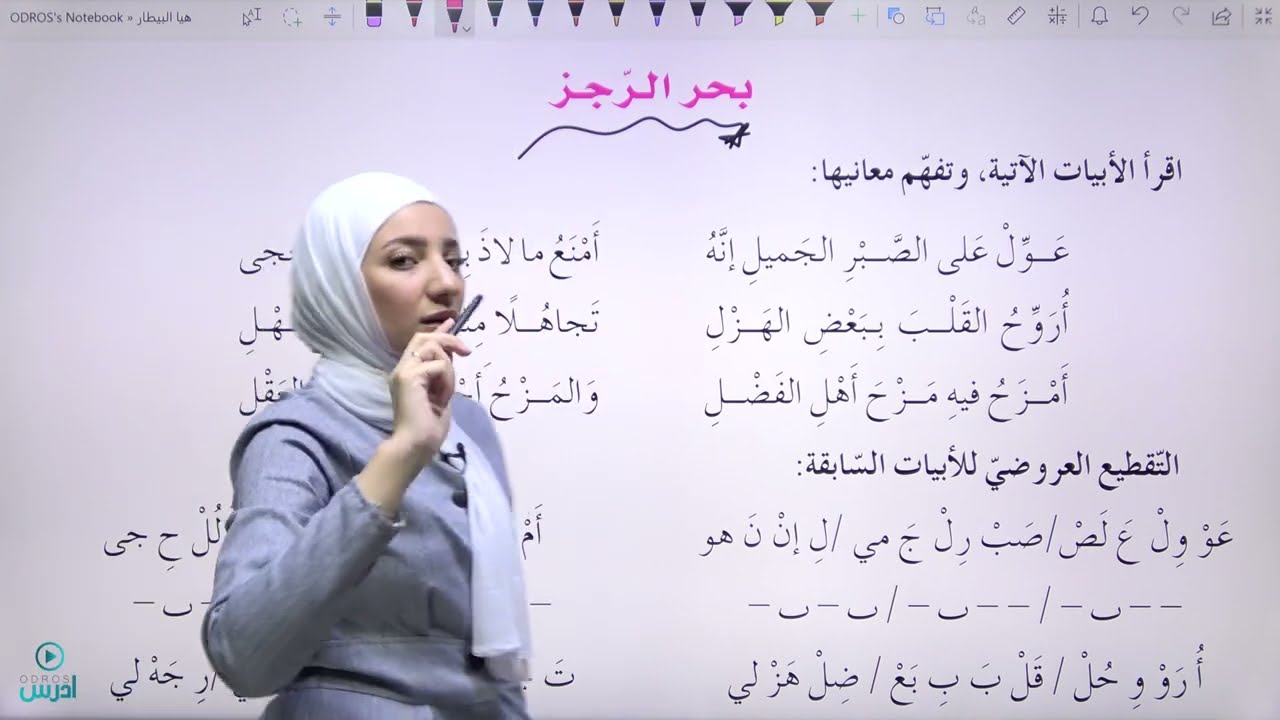 ODROS's Notebook » هيا البيطار
بحر الرّجز
اقرأ الأبيات الآتية، وتفهّم معانيها:
عَــوِّلْ عَلى الصَّـبْرِ الجَميلِ إنَّهُ أَمْنَعُ ما لاذَ
أُرَوِّحُ القَلْـبَ بِـبَعْضِ الهَـزْلِ تَجاهُــلًا
أَمْـزَحُ فيهِ مَـزْحَ أَهْلِ الفَضْـلِ وَالمَـزْحُ العَقْلِ
التّقطيع العروضيّ للأبيات السّابقة:
عَوْ وِلْ عَ لَصْ/ صَبْ رِلْ جَ مي /لِ إنْ نَ هو أَمْ لُلْ حِ جى
– – ب – / – – ب – / ب – ب – – – ب –
أُ رَوْ وِ حُلْ / قَلْ بَ بِ بَعْ / ضِلْ هَزْ لي تَ /رِ جَهْ لي
ODROS
ادرس